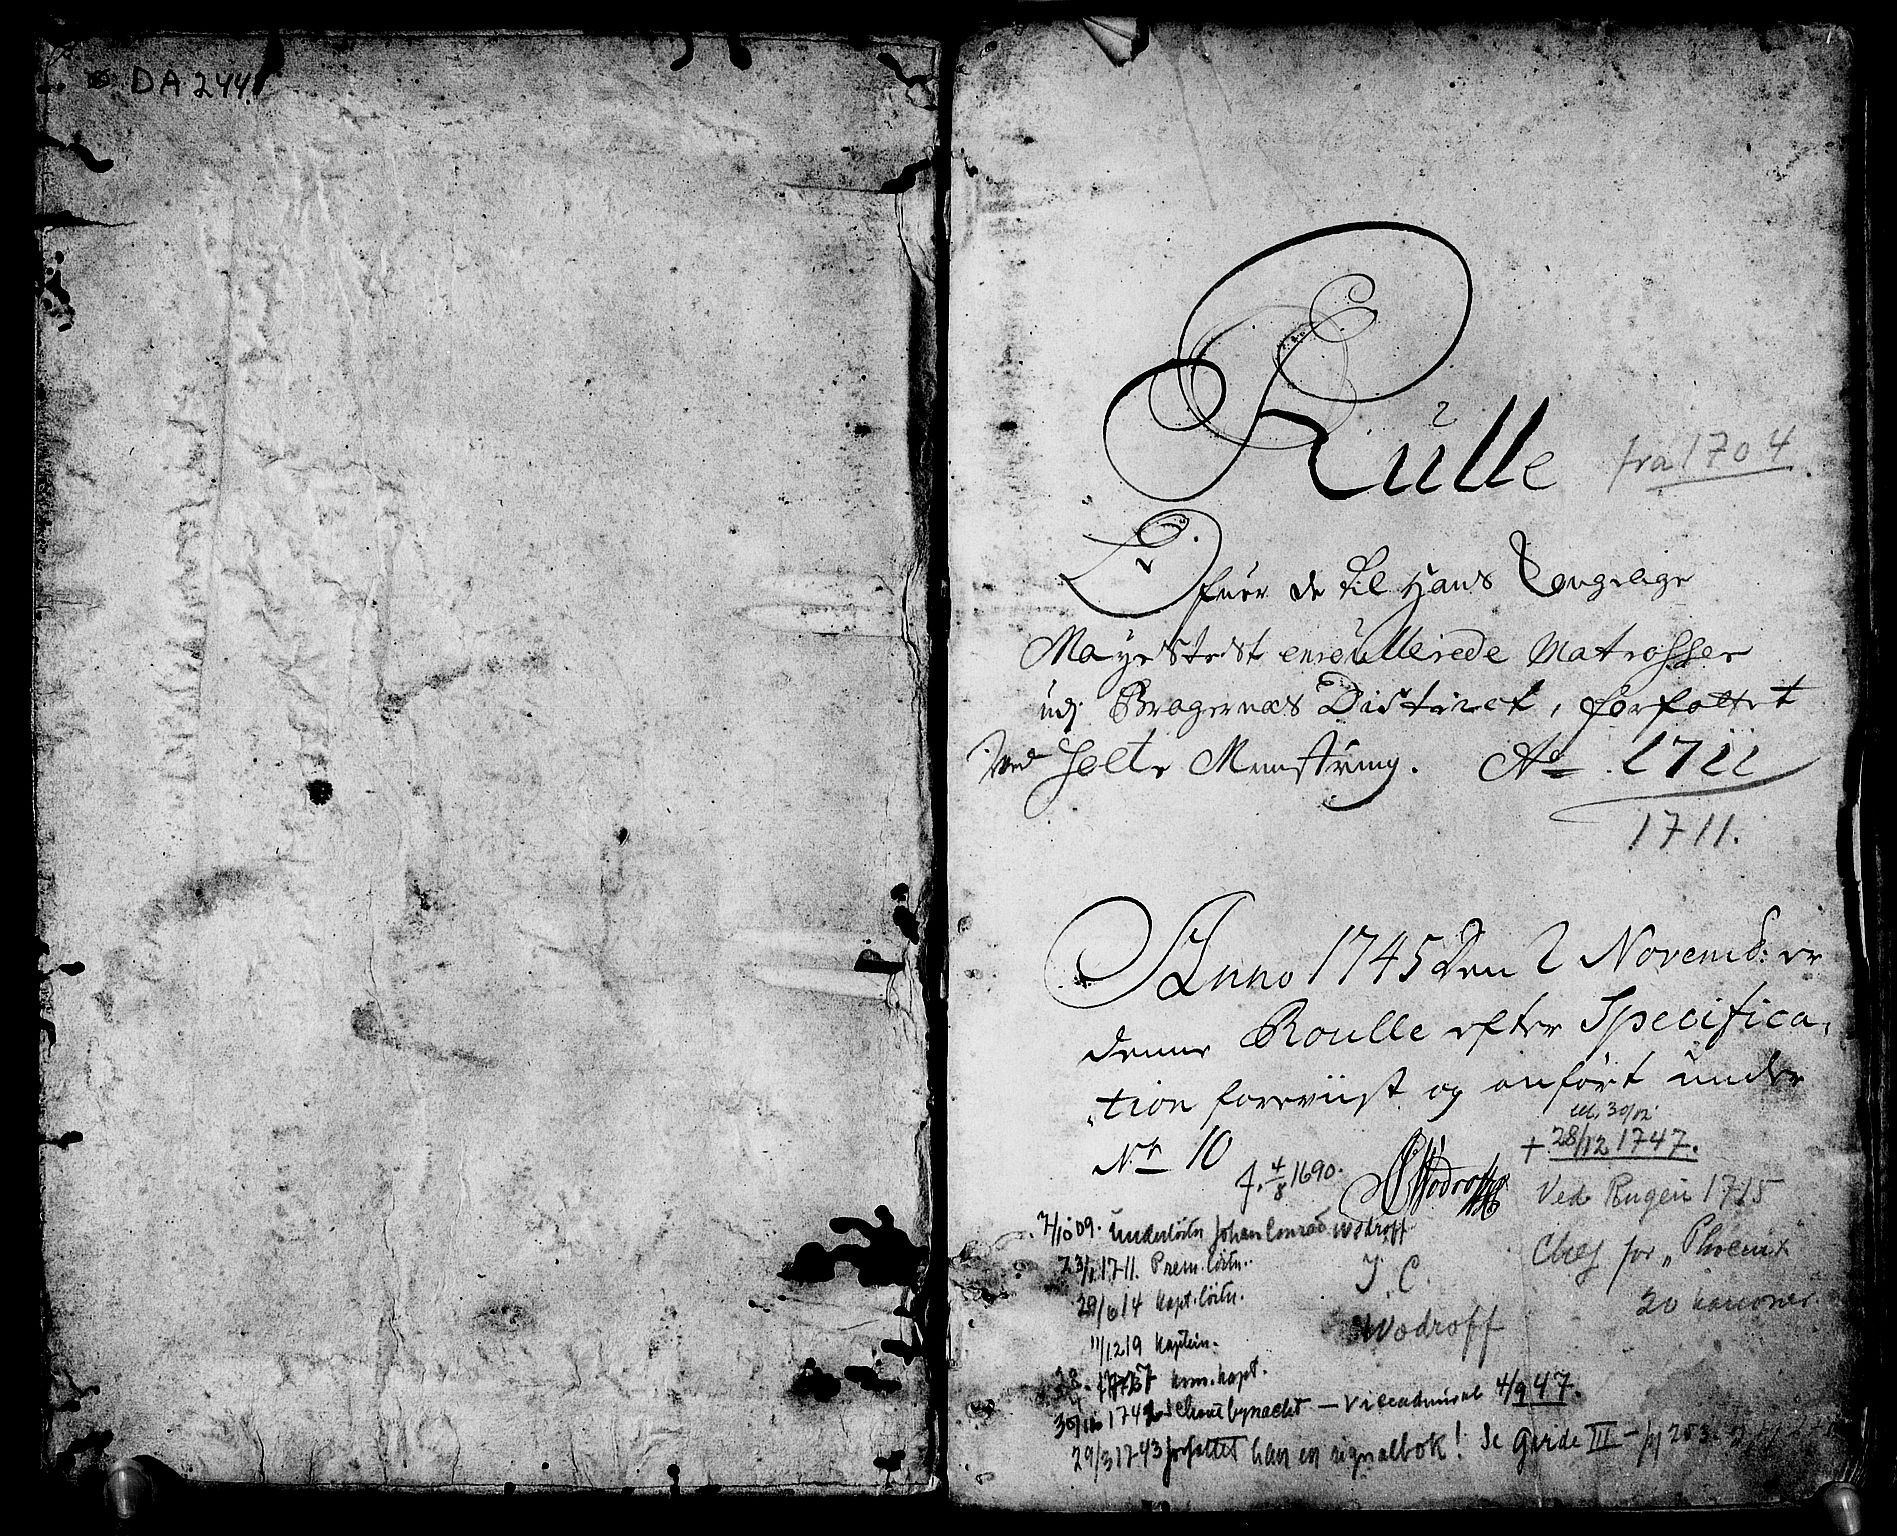 DA 244
Rulle fra 1704
Ofuer de til Hans Kongelige
Mayestest enroullerede Matrosser
udj Bragernæs District, forfattet
Ved holte Mynstring. Ao 1711
1711.
Anno 1745 den 2 Novemb: er
denne Roulle efter Specifica,
,tion foreviist og anført under
No 10
f. 4/8 1690.
CWodroff
30/12
+ 28/12 1747.
Ved Rugen 1715
Chef for „Phoenix
20 kanoner.
7/10 09. Underløitn Johan Conrad Wodroff
23/1 1711. Prem.løitn.
29/6 14 Kapt.løitn.
11/12 19 Kaptein.
kom.kapt.
J. C.
Wodroff
30/10 1742 Schoutbynacht – Viceadmiral 4/9 47.
29/3 1743 forfattet han en signalbok! Se Garde III –